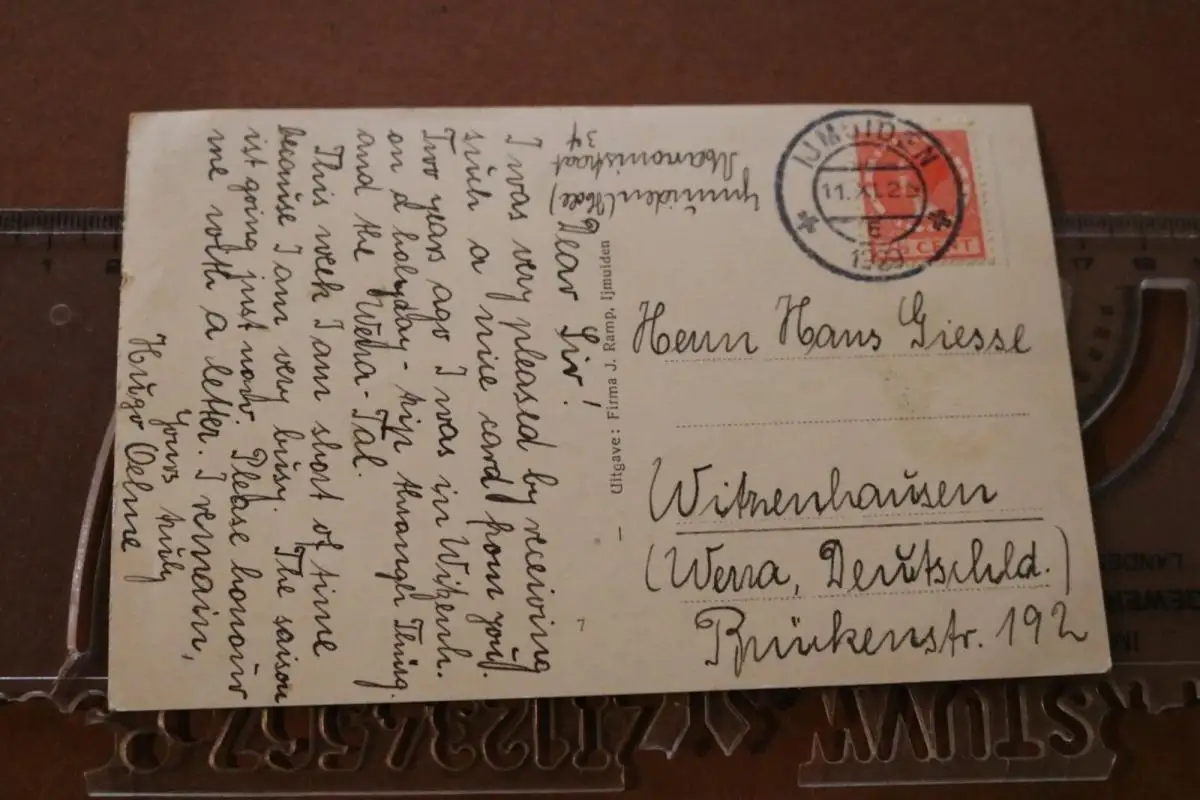 IJMUIDEN
11.XI.2
E
1929
CENT
Ijmuiden (Hol)
34
Dear Sir!
I was very pleased by receiving
such a nice card from you!
Two years ago I was in Witzenh.
on a holyday-trip through Thüng.
and the Werra-Tal.
This week I am short of time
because I am very busy. The saison
ist going just now. Please honour
me with a letter. I remain,
Yours truly
Hugo Oelme
Uitgave: Firma J. Ramp, Ijmuiden
Herrn Hans Giesse
Witzenhausen
(Werra, Deutschld.)
Brückenstr. 192
7
1
17
LANDE
IM
1234567
STUVW